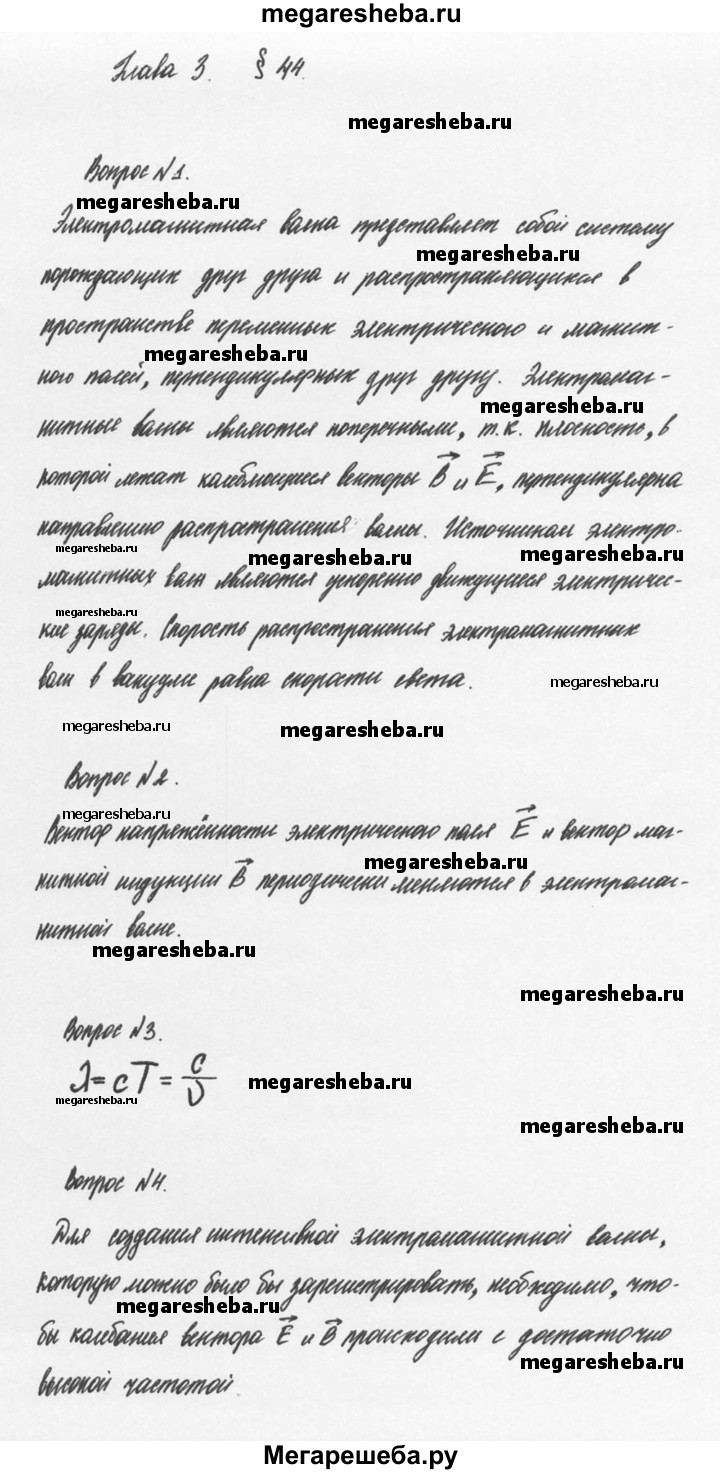 megaresheba.ru
Глава 3. § 44.
megaresheba.ru
Вопрос №1.
megaresheba.ru
Электромагнитная волна представляет собой систему
megaresheba.ru
порождающих друг друга и распространяющихся в
пространстве переменных электрического и магнит-
megaresheba.ru
ного полей, перпендикулярных друг другу. Электромаг-
megaresheba.ru
нитные волны являются поперечными, т.к. плоскость, в
которой лежат колеблющиеся векторы B и E, перпендикулярна
направлению распространения волны. Источником электро-
megaresheba.ru megaresheba.ru megaresheba.ru
магнитных волн являются ускоренно движущиеся электричес-
megaresheba.ru
кие заряды. Скорость распространения электромагнитных
волн в вакууме равна скорости света.
megaresheba.ru
megaresheba.ru megaresheba.ru
Вопрос №2.
megaresheba.ru
Вектор напряжённости электрического поля E и вектор маг-
megaresheba.ru
нитной индукции B периодически меняются в электромаг-
нитной волне.
megaresheba.ru
megaresheba.ru
Вопрос №3.
λ = cT = c/ν
megaresheba.ru
megaresheba.ru
megaresheba.ru
Вопрос №4.
Для создания интенсивной электромагнитной волны,
которую можно было бы зарегистрировать, необходимо, что-
megaresheba.ru
бы колебания вектора E и B происходили с достаточно
megaresheba.ru
высокой частотой.
Мегарешеба.ру